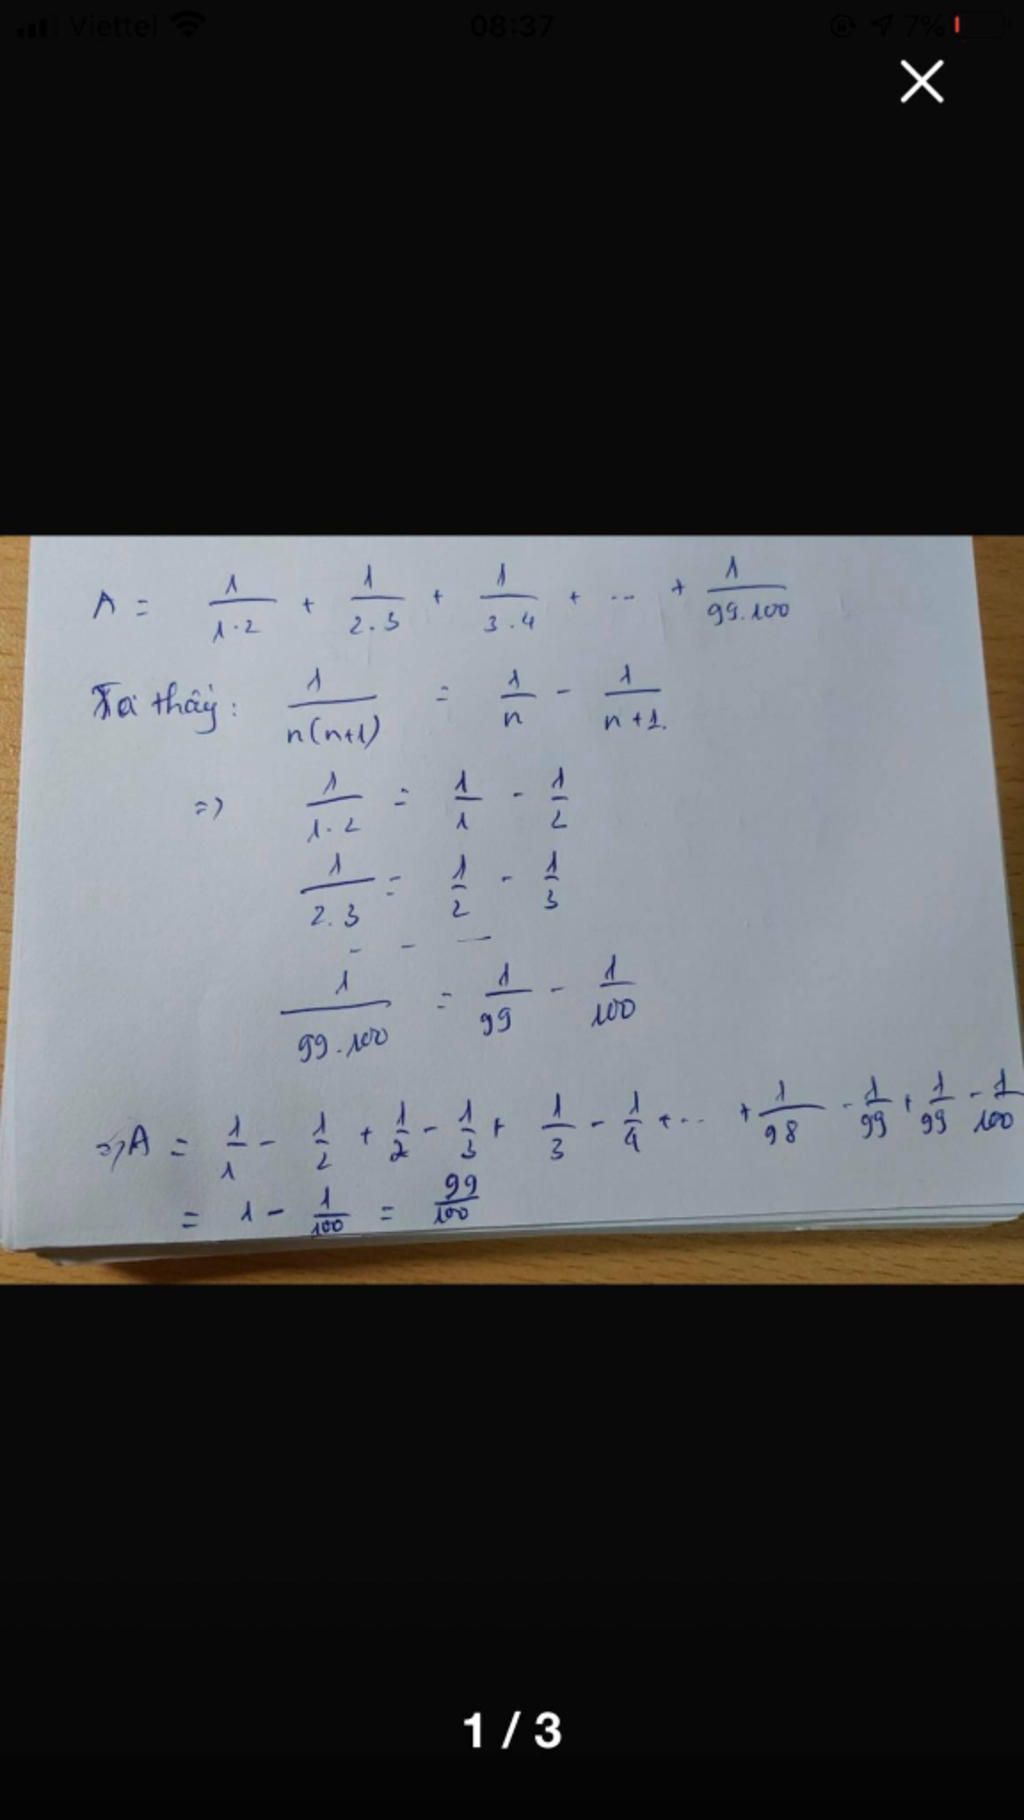 Viettel 08:37 7%
A = 1/1·2 + 1/2.3 + 1/3.4 + ... + 1/99.100
Ta thấy: 1/n(n+1) = 1/n - 1/n+1.
=> 1/1.2 = 1/1 - 1/2
1/2.3 = 1/2 - 1/3
- - -
1/99.100 = 1/99 - 1/100
=> A = 1/1 - 1/2 + 1/2 - 1/3 + 1/3 - 1/4 + ... + 1/98 - 1/99 + 1/99 - 1/100
= 1 - 1/100 = 99/100
1 / 3